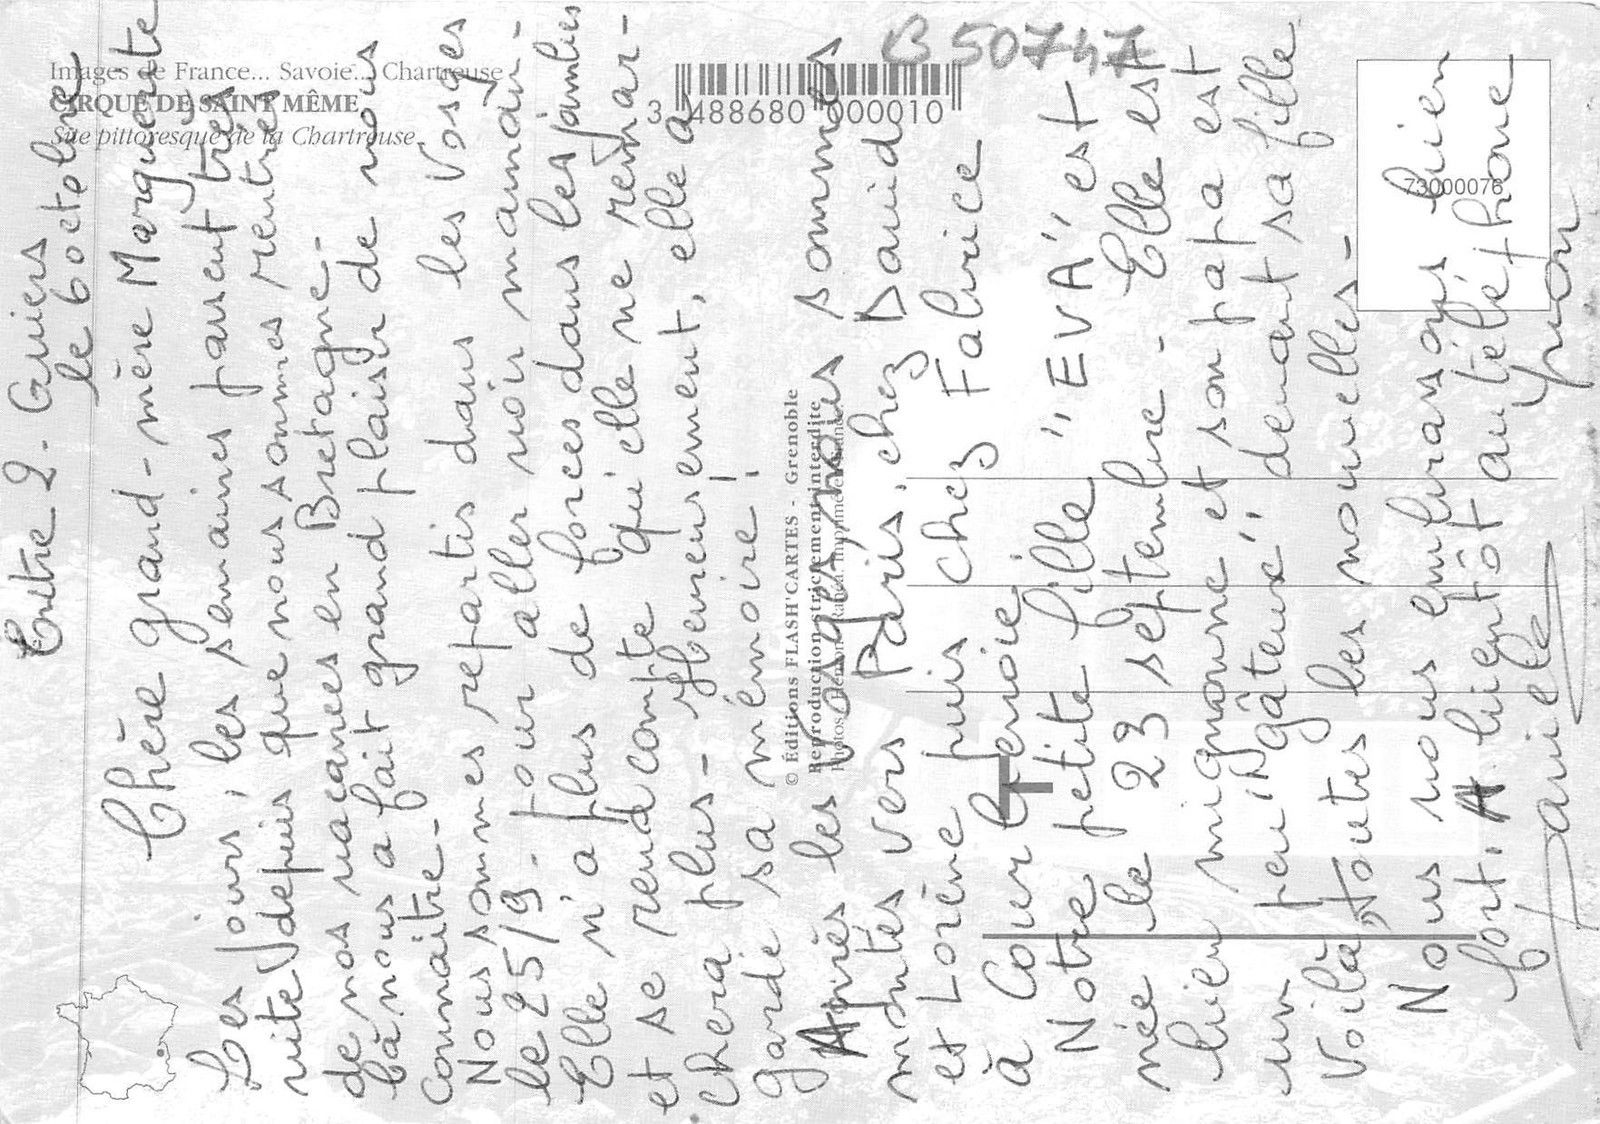 Images de France... Savoie... Chartreuse
CIRQUE DE SAINT MÊME
Site pittoresque de la Chartreuse
3 488680 000010
B 50747
73000076
© Éditions FLASH'CARTES - Grenoble
Reproduction strictement interdite
Entre 2. Guiers
le 6 octobre
Chère grand-mère Marguerite
Les jours, les semaines passent très
vite depuis que nous sommes rentrés
de nos vacances en Bretagne.
Là nous a fait grand plaisir de vous
connaitre.
Nous sommes repartis dans les Vosges
le 25/9. pour aller voir maman.
Elle n'a plus de forces dans les jambes
et se rend compte qu'elle ne remar-
chera plus - Heureusement, elle a
gardé sa mémoire!
Après les Vosges, nous sommes
montés vers Paris, chez David
et Lorène puis chez Fabrice
à Courbevoie.
Notre petite fille "EVA" est
née le 23 septembre. Elle est
bien mignonne et son papa est
un peu "gâteux" devant sa fille
Voilà, toutes les nouvelles-
Nous vous embrassons bien
fort. A bientôt au téléphone
Danièle Yvon